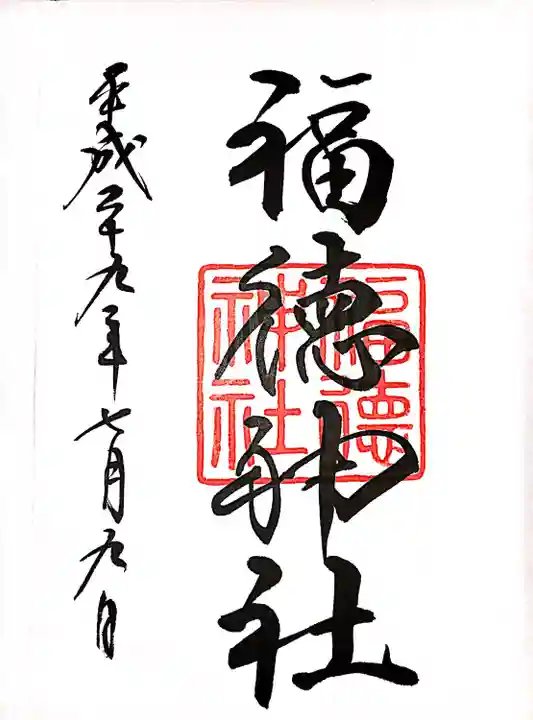 福徳神社
福徳
神社
平成二十九年七月九日